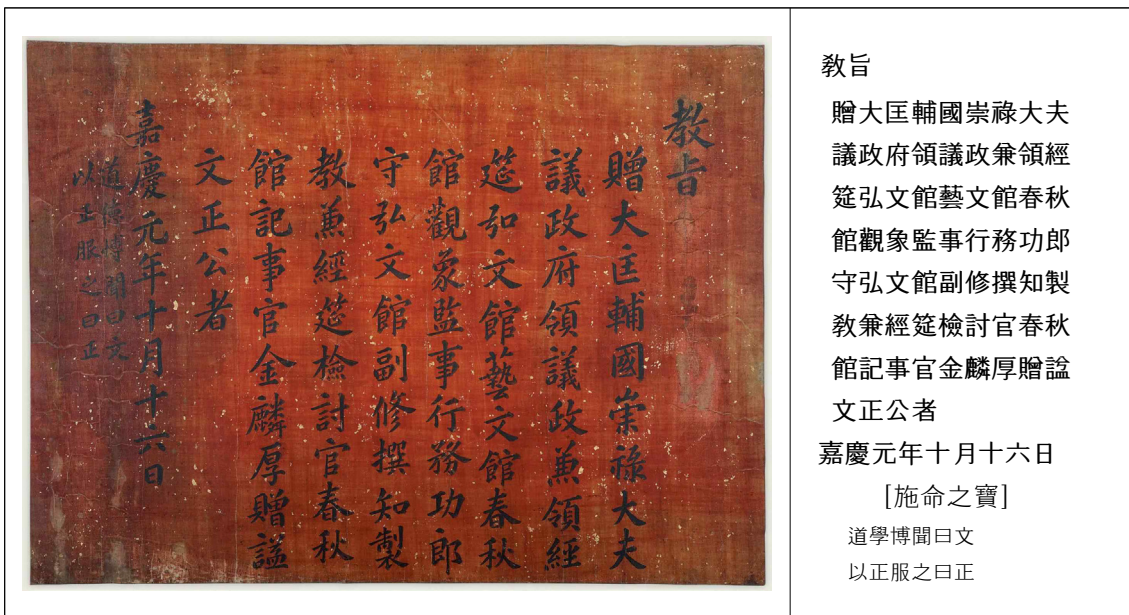 教旨
贈大匡輔國崇祿大夫
議政府領議政兼領經
筵弘文館藝文館春秋
館觀象監事行務功郎
守弘文館副修撰知製
教兼經筵檢討官春秋
館記事官金麟厚贈謚
文正公者
嘉慶元年十月十六日
道德博聞曰文
以正服之曰正
敎旨
贈大匡輔國崇祿大夫
議政府領議政兼領經
筵弘文館藝文館春秋
館觀象監事行務功郎
守弘文館副修撰知製
敎兼經筵檢討官春秋
館記事官金麟厚贈諡
文正公者
嘉慶元年十月十六日
[施命之寶]
道學博聞曰文
以正服之曰正